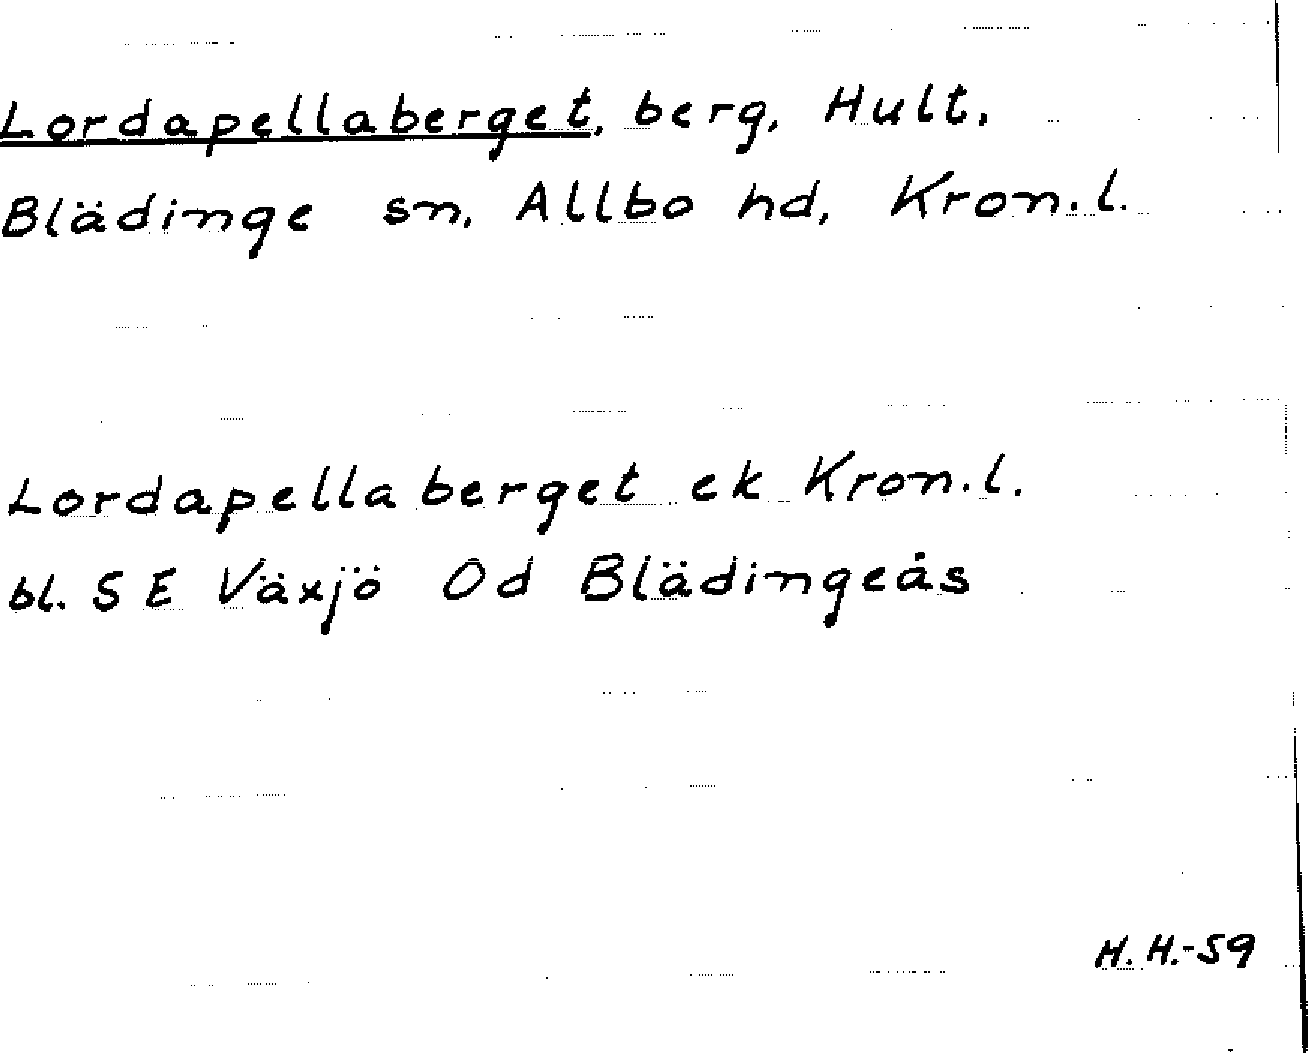 Lordapellaberget, berg, Hult,
Blädinge sn, Allbo hd, Kron.l.
Lordapellaberget ek Kron.l.
bl. S E Växjö Od Blädingeås
H. H.-59